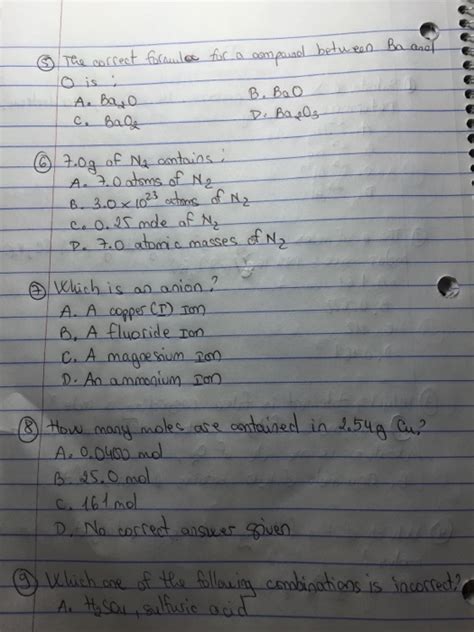 ⑤ The correct formula for a compound between Ba and
O is :
A. Ba₂O B. BaO
C. BaO₂ D. Ba₂O₃
⑥ 7.0g of N₂ contains :
A. 7.0 atoms of N₂
B. 3.0 x 10²³ atoms of N₂
C. 0.25 mole of N₂
D. 7.0 atomic masses of N₂
⑦ Which is an anion ?
A. A copper (I) Ion
B. A fluoride Ion
C. A magnesium Ion
D. An ammonium Ion
⑧ How many moles are contained in 2.54g Cu?
A. 0.0400 mol
B. 25.0 mol
C. 161 mol
D. No correct answer given
⑨ Which one of the following combinations is incorrect?
A. H₂SO₄, sulfuric acid